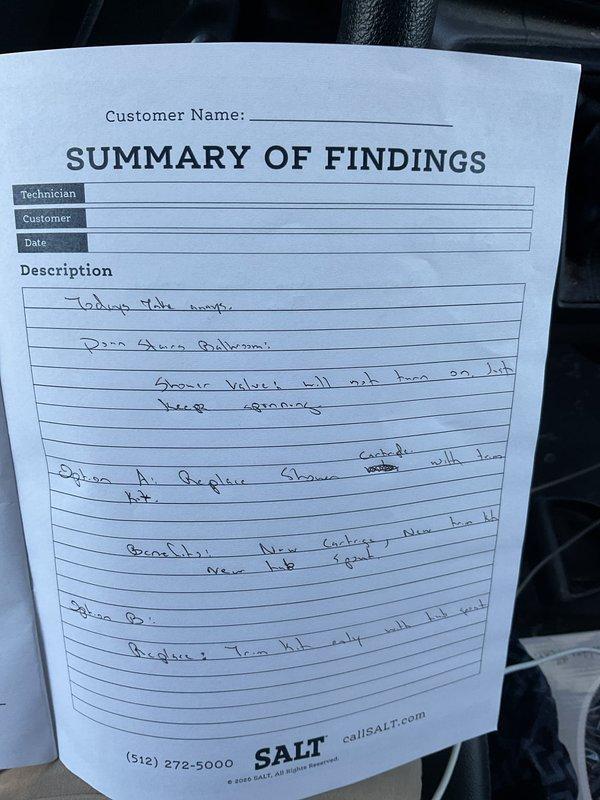 Customer Name:
SUMMARY OF FINDINGS
Technician
Customer
Date
Description
Todays Take aways.
Down Stairs Bathroom:
Shower Valve: will not turn on. Just
keeps spinning
Option A: Replace Shower Cartridge with trim
Kit.
Benefits: New Cartrige, New trim kit
New tub spout
Option B:
Replace: Trim Kit only with tub spout
(512) 272-5000
SALT
callSALT.com
© 2025 SALT, All Rights Reserved.